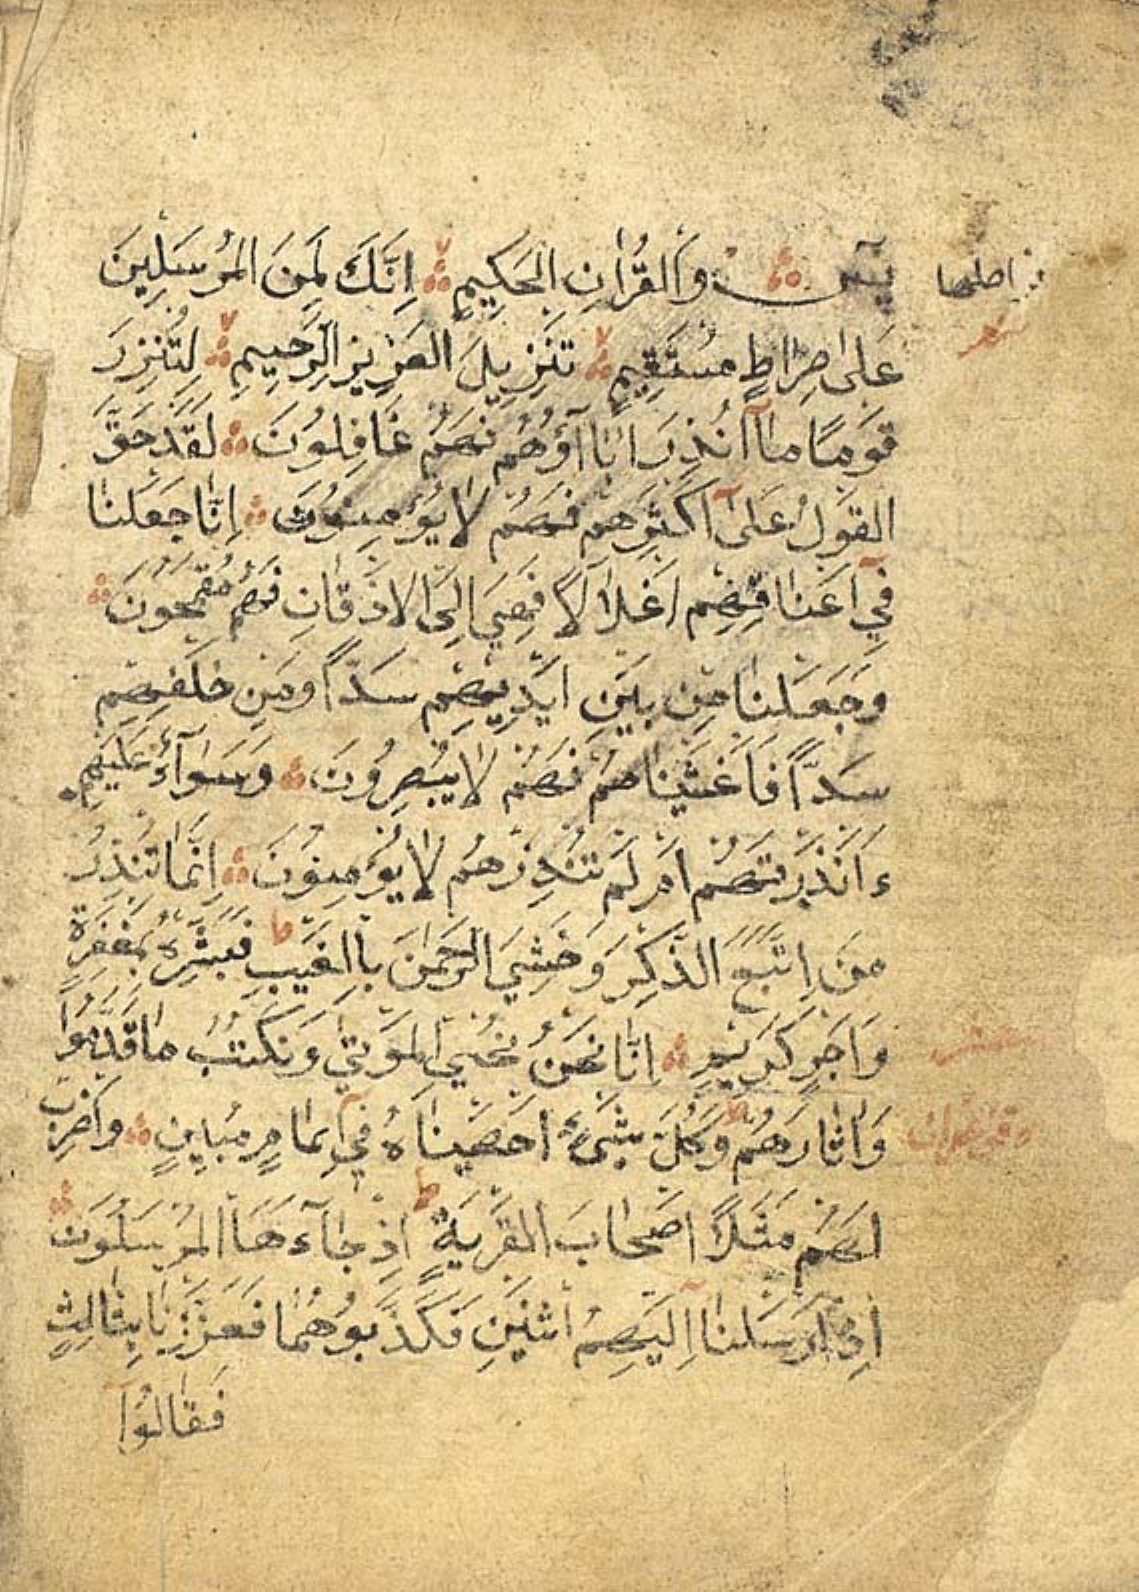 يٓسٓ ۝ وَالْقُرْاٰنِ الْحَكِيمِ ۝ اِنَّكَ لَمِنَ الْمُرْسَلِينَ
عَلٰى صِرَاطٍ مُسْتَقِيمٍ ۝ تَنْزِيلَ الْعَزِيزِ الرَّحِيمِ ۝ لِتُنْذِرَ
قَوْمًا مَآ اُنْذِرَ اٰبَآؤُهُمْ فَهُمْ غَافِلُونَ ۝ لَقَدْ حَقَّ
الْقَوْلُ عَلٰىٓ اَكْثَرِهِمْ فَهُمْ لَا يُؤْمِنُونَ ۝ اِنَّا جَعَلْنَا
فِىٓ اَعْنَاقِهِمْ اَغْلَالًا فَهِىَ اِلَى الْاَذْقَانِ فَهُمْ مُقْمَحُونَ ۝
وَجَعَلْنَا مِنْ بَيْنِ اَيْدِيهِمْ سَدًّا وَمِنْ خَلْفِهِمْ
سَدًّا فَاَغْشَيْنَاهُمْ فَهُمْ لَا يُبْصِرُونَ ۝ وَسَوَآءٌ عَلَيْهِمْ
ءَاَنْذَرْتَهُمْ اَمْ لَمْ تُنْذِرْهُمْ لَا يُؤْمِنُونَ ۝ اِنَّمَا تُنْذِرُ
مَنِ اتَّبَعَ الذِّكْرَ وَخَشِىَ الرَّحْمٰنَ بِالْغَيْبِ ط فَبَشِّرْهُ بِمَغْفِرَةٍ
وَاَجْرٍ كَرِيمٍ ۝ اِنَّا نَحْنُ نُحْىِ الْمَوْتٰى وَنَكْتُبُ مَا قَدَّمُوا
وَاٰثَارَهُمْ وَكُلَّ شَىْءٍ اَحْصَيْنَاهُ فِىٓ اِمَامٍ مُبِينٍ ۝ وَاضْرِبْ
لَهُمْ مَثَلًا اَصْحَابَ الْقَرْيَةِ ط اِذْ جَآءَهَا الْمُرْسَلُونَ ۝
اِذْ اَرْسَلْنَآ اِلَيْهِمُ اثْنَيْنِ فَكَذَّبُوهُمَا فَعَزَّزْنَا بِثَالِثٍ
فَقَالُوٓا